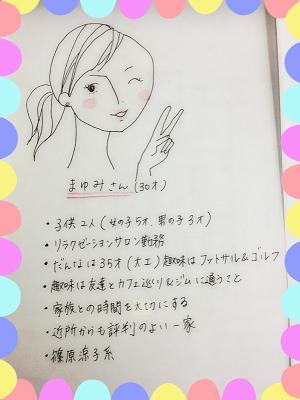 まゆみさん(30才)
・子供2人(女の子5才、男の子3才)
・リラクゼーションサロン勤務
・だんなは35才(大工)趣味はフットサル&ゴルフ
・趣味は友達とカフェ巡り&ジムに通うこと
・家族との時間を大切にする
・近所からも評判のよい一家
・篠原涼子系